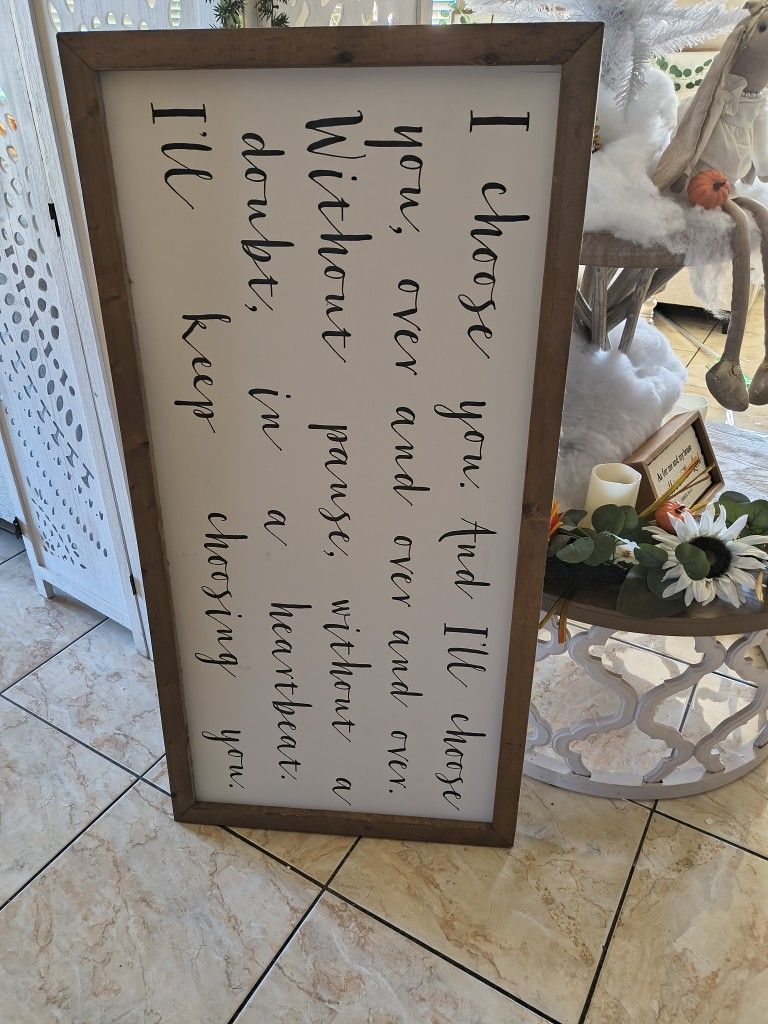 I choose you. And I'll choose
you, over and over and over.
Without pause, without a
doubt, in a heartbeat.
I'll keep choosing you.
As for me and my house